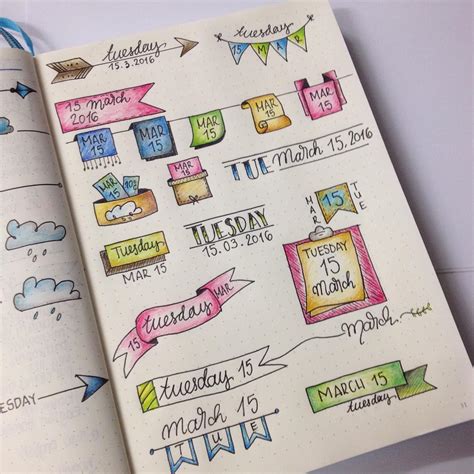 tuesday
15.3.2016
15 MAR
15 march
2016
MAR
15
MAR
15
MAR
15
MAR
15
MAR
15
MAR
15
MAR
15
TUE March 15, 2016
TUESDAY
15.03.2016
MAR 15 TUE
Tuesday
MAR 15
TUESDAY
15
March
15 tuesday MAR
15 march.
tuesday 15
march 15
TUE
MARCH 15
tuesday
ESDAY